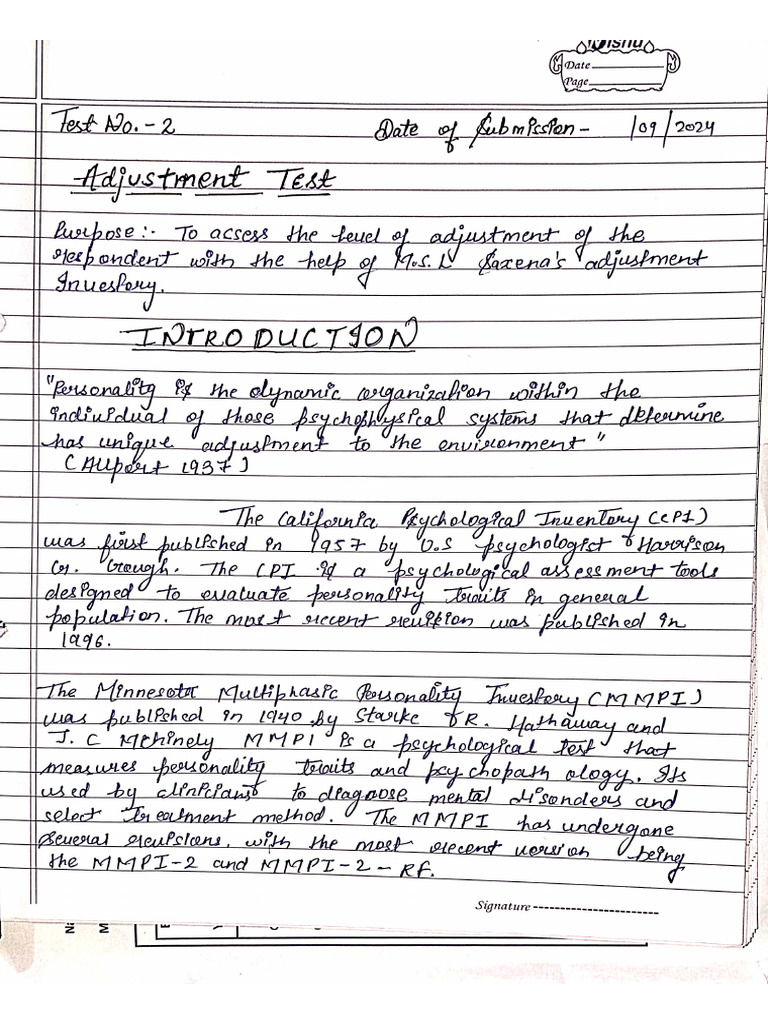 Nishu
Date
Page
Test No. - 2 Date of Submission - /09/2024
Adjustment Test
Purpose:- To acsess the level of adjustment of the
respondent with the help of M.S.L Saxena's adjustment
Inventory.
INTRODUCTION
"Personality is the dynamic organization within the
individual of those psychophysical systems that determine
has unique adjustment to the environment"
(Allport 1937)
The California Psychological Inventory (CPI)
was first published in 1957 by U.S psychologist Harrison
G. Gough. The CPI is a psychological assessment tools
designed to evaluate personality traits in general
population. The most recent revision was published in
1996.
The Minnesota Multiphasic Personality Inventory (MMPI)
was published in 1940 by Starke R. Hathaway and
J. C Mchinely MMPI is a psychological test that
measures personality traits and psychopath ology. Its
used by clinicians to diagnose mental disonders and
select treatment method. The MMPI has undergone
several revisions, with the most recent version being
the MMPI-2 and MMPI-2-RF.
Signature